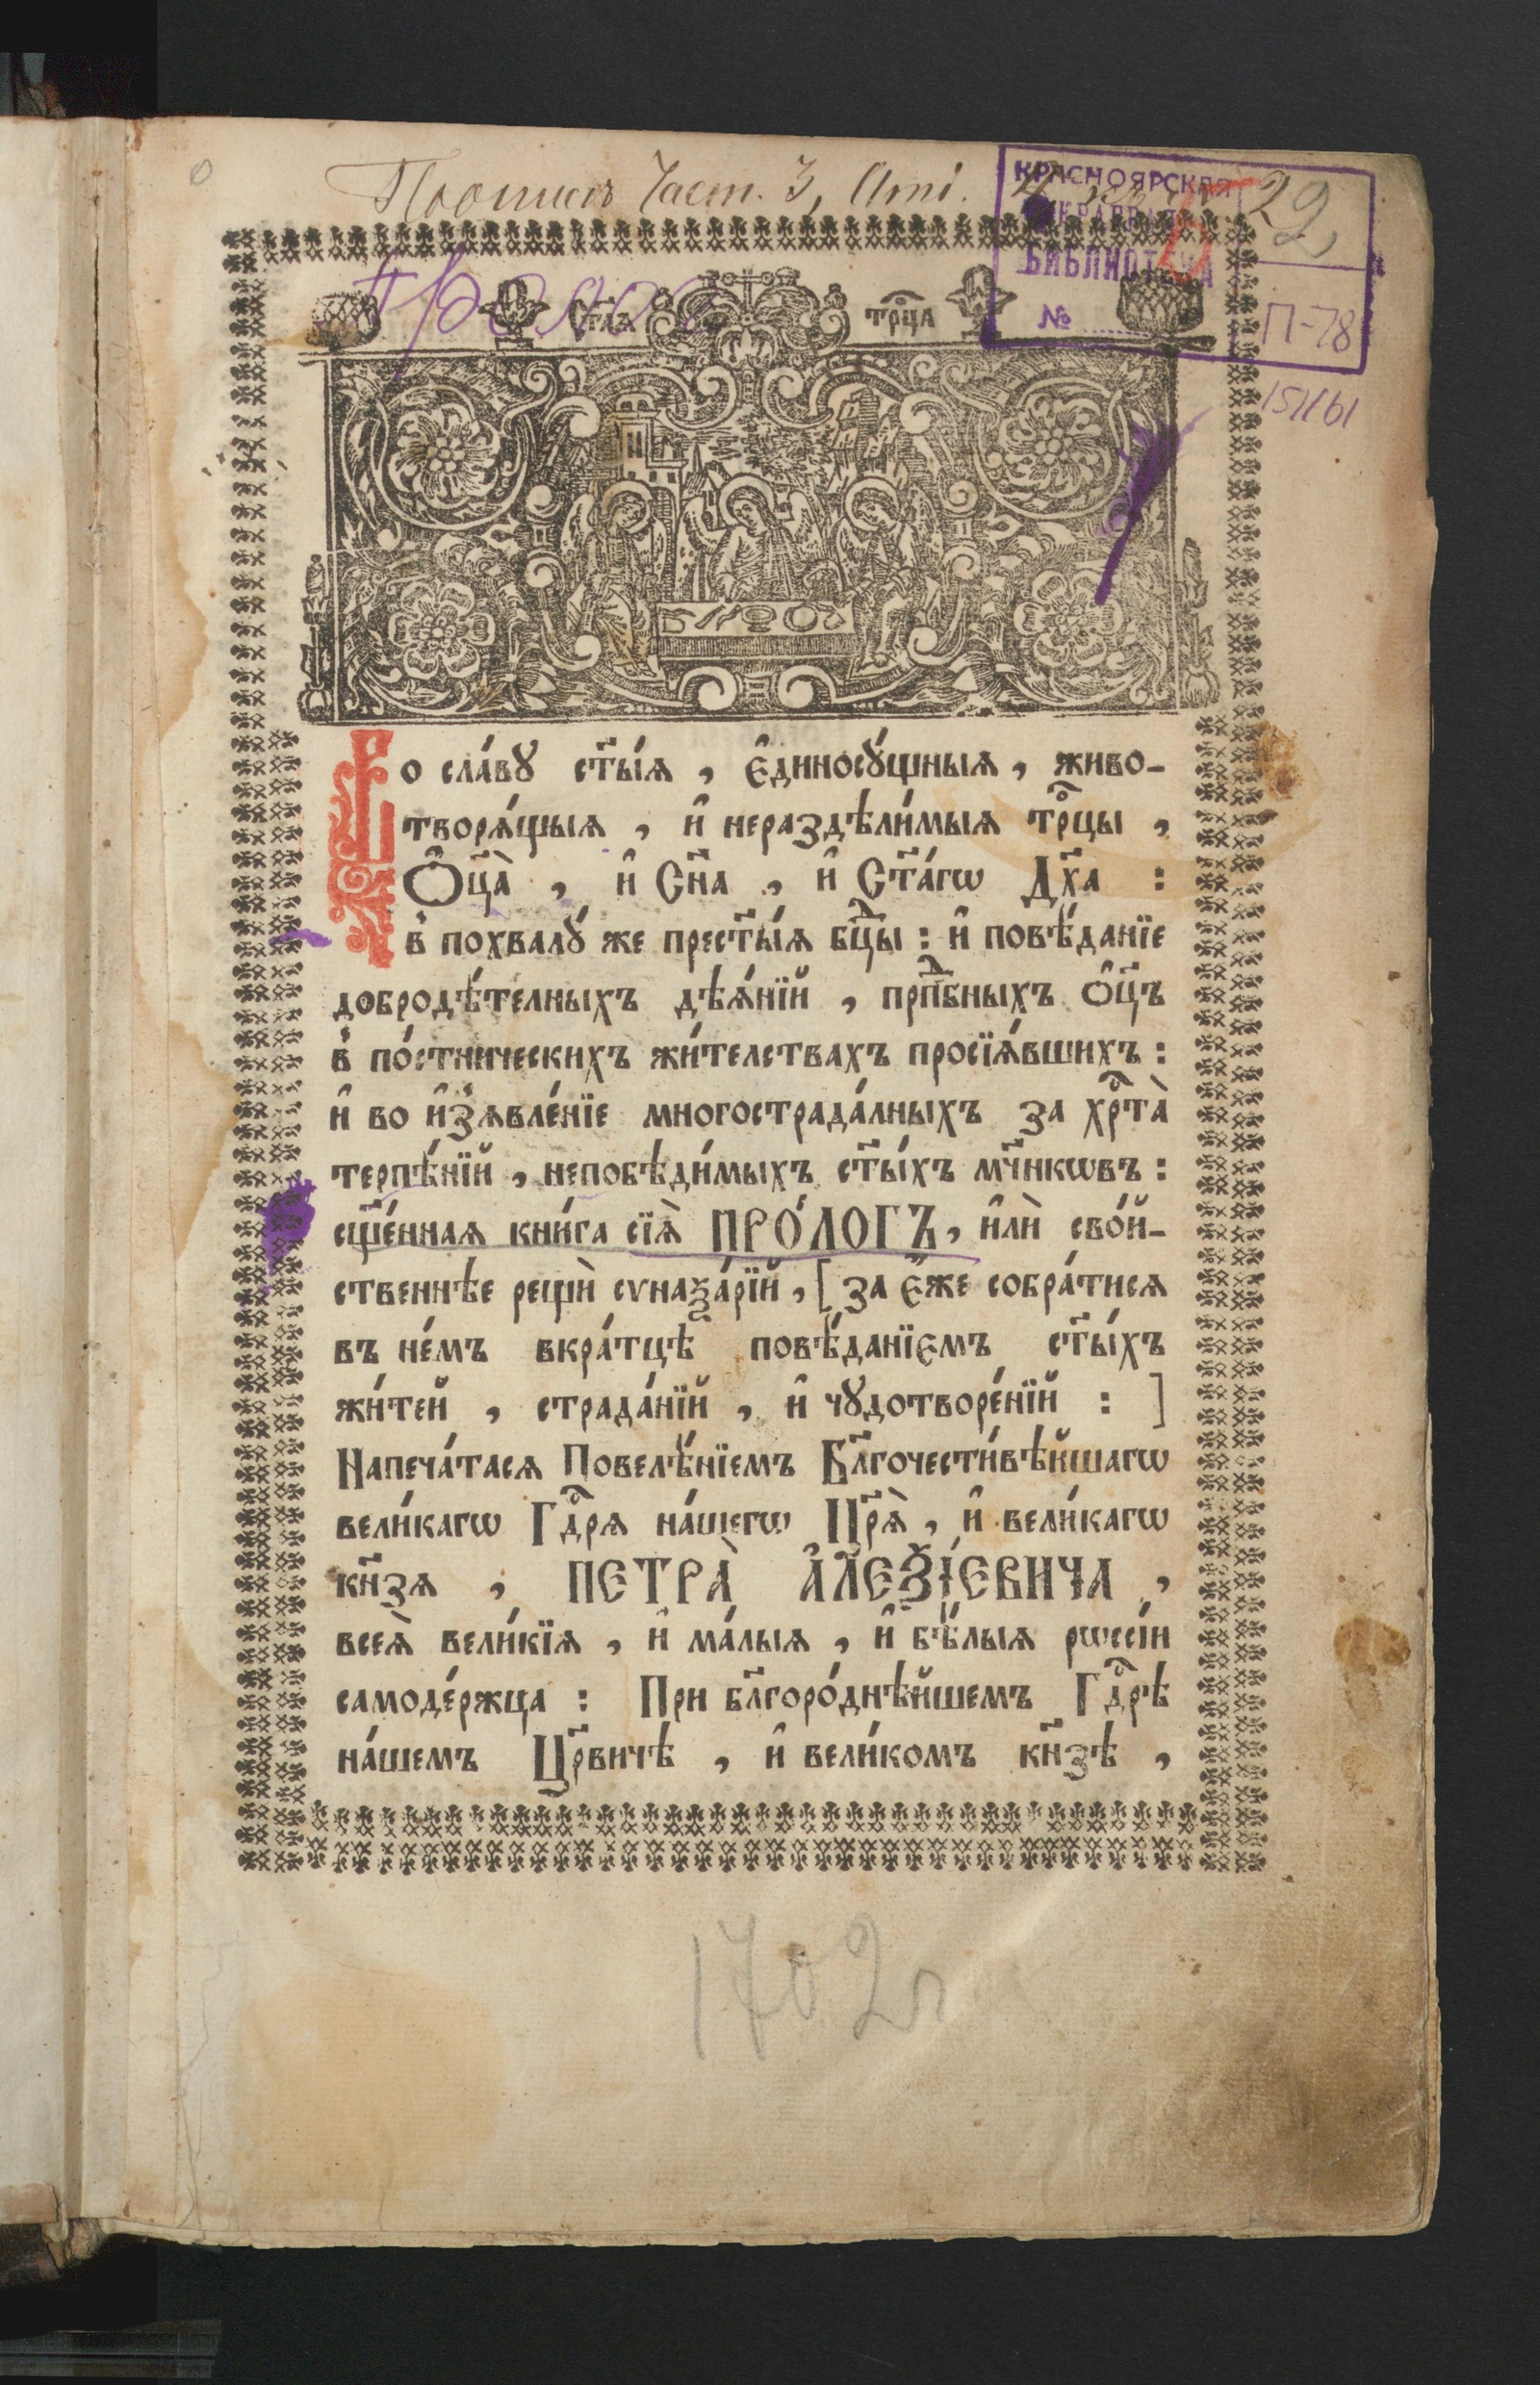 Част. 3,
КРАСНОЯРСКАЯ
КРАЕВАЯ
БИБЛИОТЕКА
№
29
П-78
Ст҃а́ѧ трⷪ҇ца
Во сла́вꙋ ст҃ы́ѧ, є҆диносꙋ́щныѧ, живо-
творѧ́щыѧ, и҆ нераздѣли́мыѧ трⷪ҇цы,
Ѻ҆ц҃а̀, и҆ Сн҃а, и҆ Ст҃а́гѡ Дх҃а :
в̾ похвалꙋ́ же прест҃ы́ѧ бцⷣы : и҆ повѣ́данїе
добродѣ́телныхъ дѣѧ́нїй, прпⷣбныхъ ѻ҆ц҃ъ
в̾ по́стническихъ жи́телствахъ просїѧ́вшихъ :
и҆ во и҆з̾ѧвле́нїе многострада́лныхъ за хрⷭ҇та̀
терпѣ́нїй, непобѣди́мыхъ ст҃ы́хъ мч҃нкѡвъ :
сщ҃е́ннаѧ кни́га сїѧ̀ ПРО́ЛОГЪ, и҆лѝ сво́й-
ственнѣе рещѝ сѵнаѯа́рїй, [ за є҆́же собра́тисѧ
въ не́мъ вкра́тцѣ повѣ́данїємъ ст҃ы́хъ
жи́тей, страда́нїй, и҆ чꙋдотворе́нїй : ]
Напеча́тасѧ Повелѣ́нїемъ Бл҃гочести́вѣйшагѡ
вели́кагѡ Гдⷭ҇рѧ на́шегѡ Цр҃ѧ̀, и҆ вели́кагѡ
кн҃зѧ, ПЕТРА̀ А҆ЛЕѮІ́ЕВИЧА,
всеѧ̀ вели́кїѧ, и҆ ма́лыѧ, и҆ бѣ́лыѧ рѡссі́и
самоде́ржца : При бл҃горо́днѣйшемъ Гдⷭ҇рѣ
на́шемъ Цр҃вичѣ, и҆ вели́комъ кн҃зѣ,
1702 г